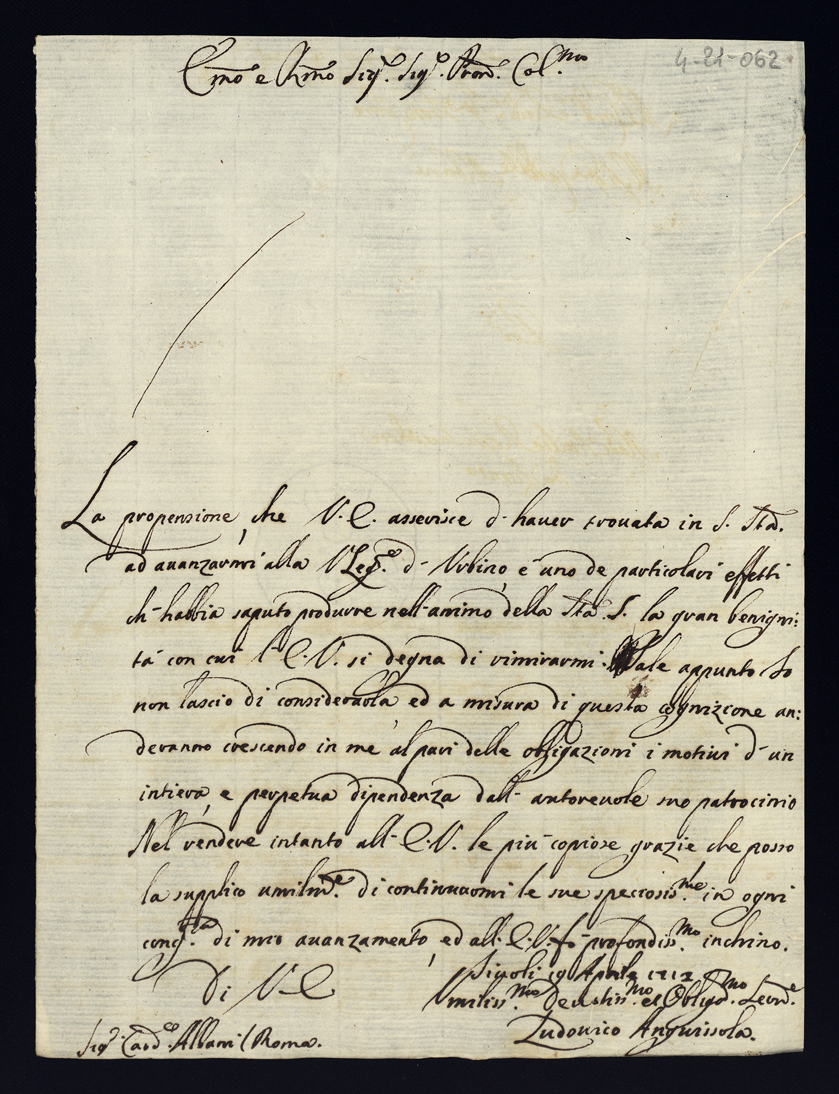 4-21-062
Emo e Rmo Sig.re Sig.re Pron. Col.mo
La propensione, che V.E. asserisce d'haver trouata in S. Sta.
ad auanzarmi alla VLeg.ne d'Urbino, è uno de particolari effetti
ch'habbia saputo produrre nell'animo della Sta. S. la gran benigni:
tà con cui l'E.V. si degna di rimirarmi. Tale appunto Io
non lascio di considerarla, ed a misura di questa cognizione an:
deranno crescendo in me al pari delle obligazioni i motiui d'un
intiera, e perpetua dipendenza dall'autoreuole suo patrocinio
Nel rendere intanto all'E.V. le più copiose grazie che posso
la supplico umilm.e di continuarmi le sue speciosis.me in ogni
cong.ra di mio auanzamento, ed all'E.V. fo profondiss.mo inchino.
Di V.E. 19 Aprile
Umiliss.mo Deuotiss.mo et Oblig.mo
Sig.r Card.e Albani (Roma. Ludovico Anguissola.